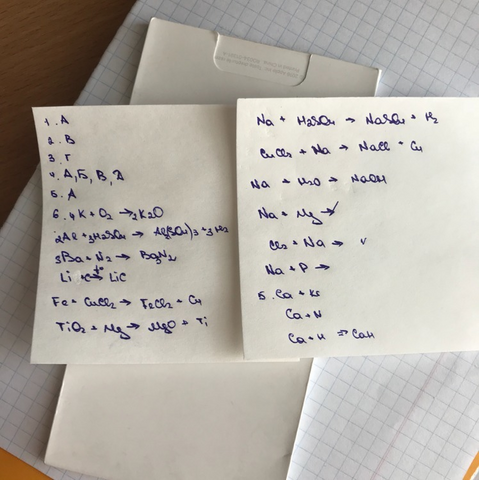 1. А
2. В
3. Г
4. А, Б, В, Д
5. А
6. 4K + O2 → 2K2O
2Al + 3H2SO4 → Al2(SO4)3 + 3H2
3Ba + N2 → Ba3N2
Li + C →t° LiC
Fe + CuCl2 → FeCl2 + Cu
TiO2 + Mg → MgO + Ti
Na + H2SO4 → NaSO4 + H2
CuCl2 + Na → NaCl + Cu
Na + H2O → NaOH
Na + Mg →
Cl2 + Na →
Na + P →
Б. Ca +
Ca + N
Ca + H → CaH